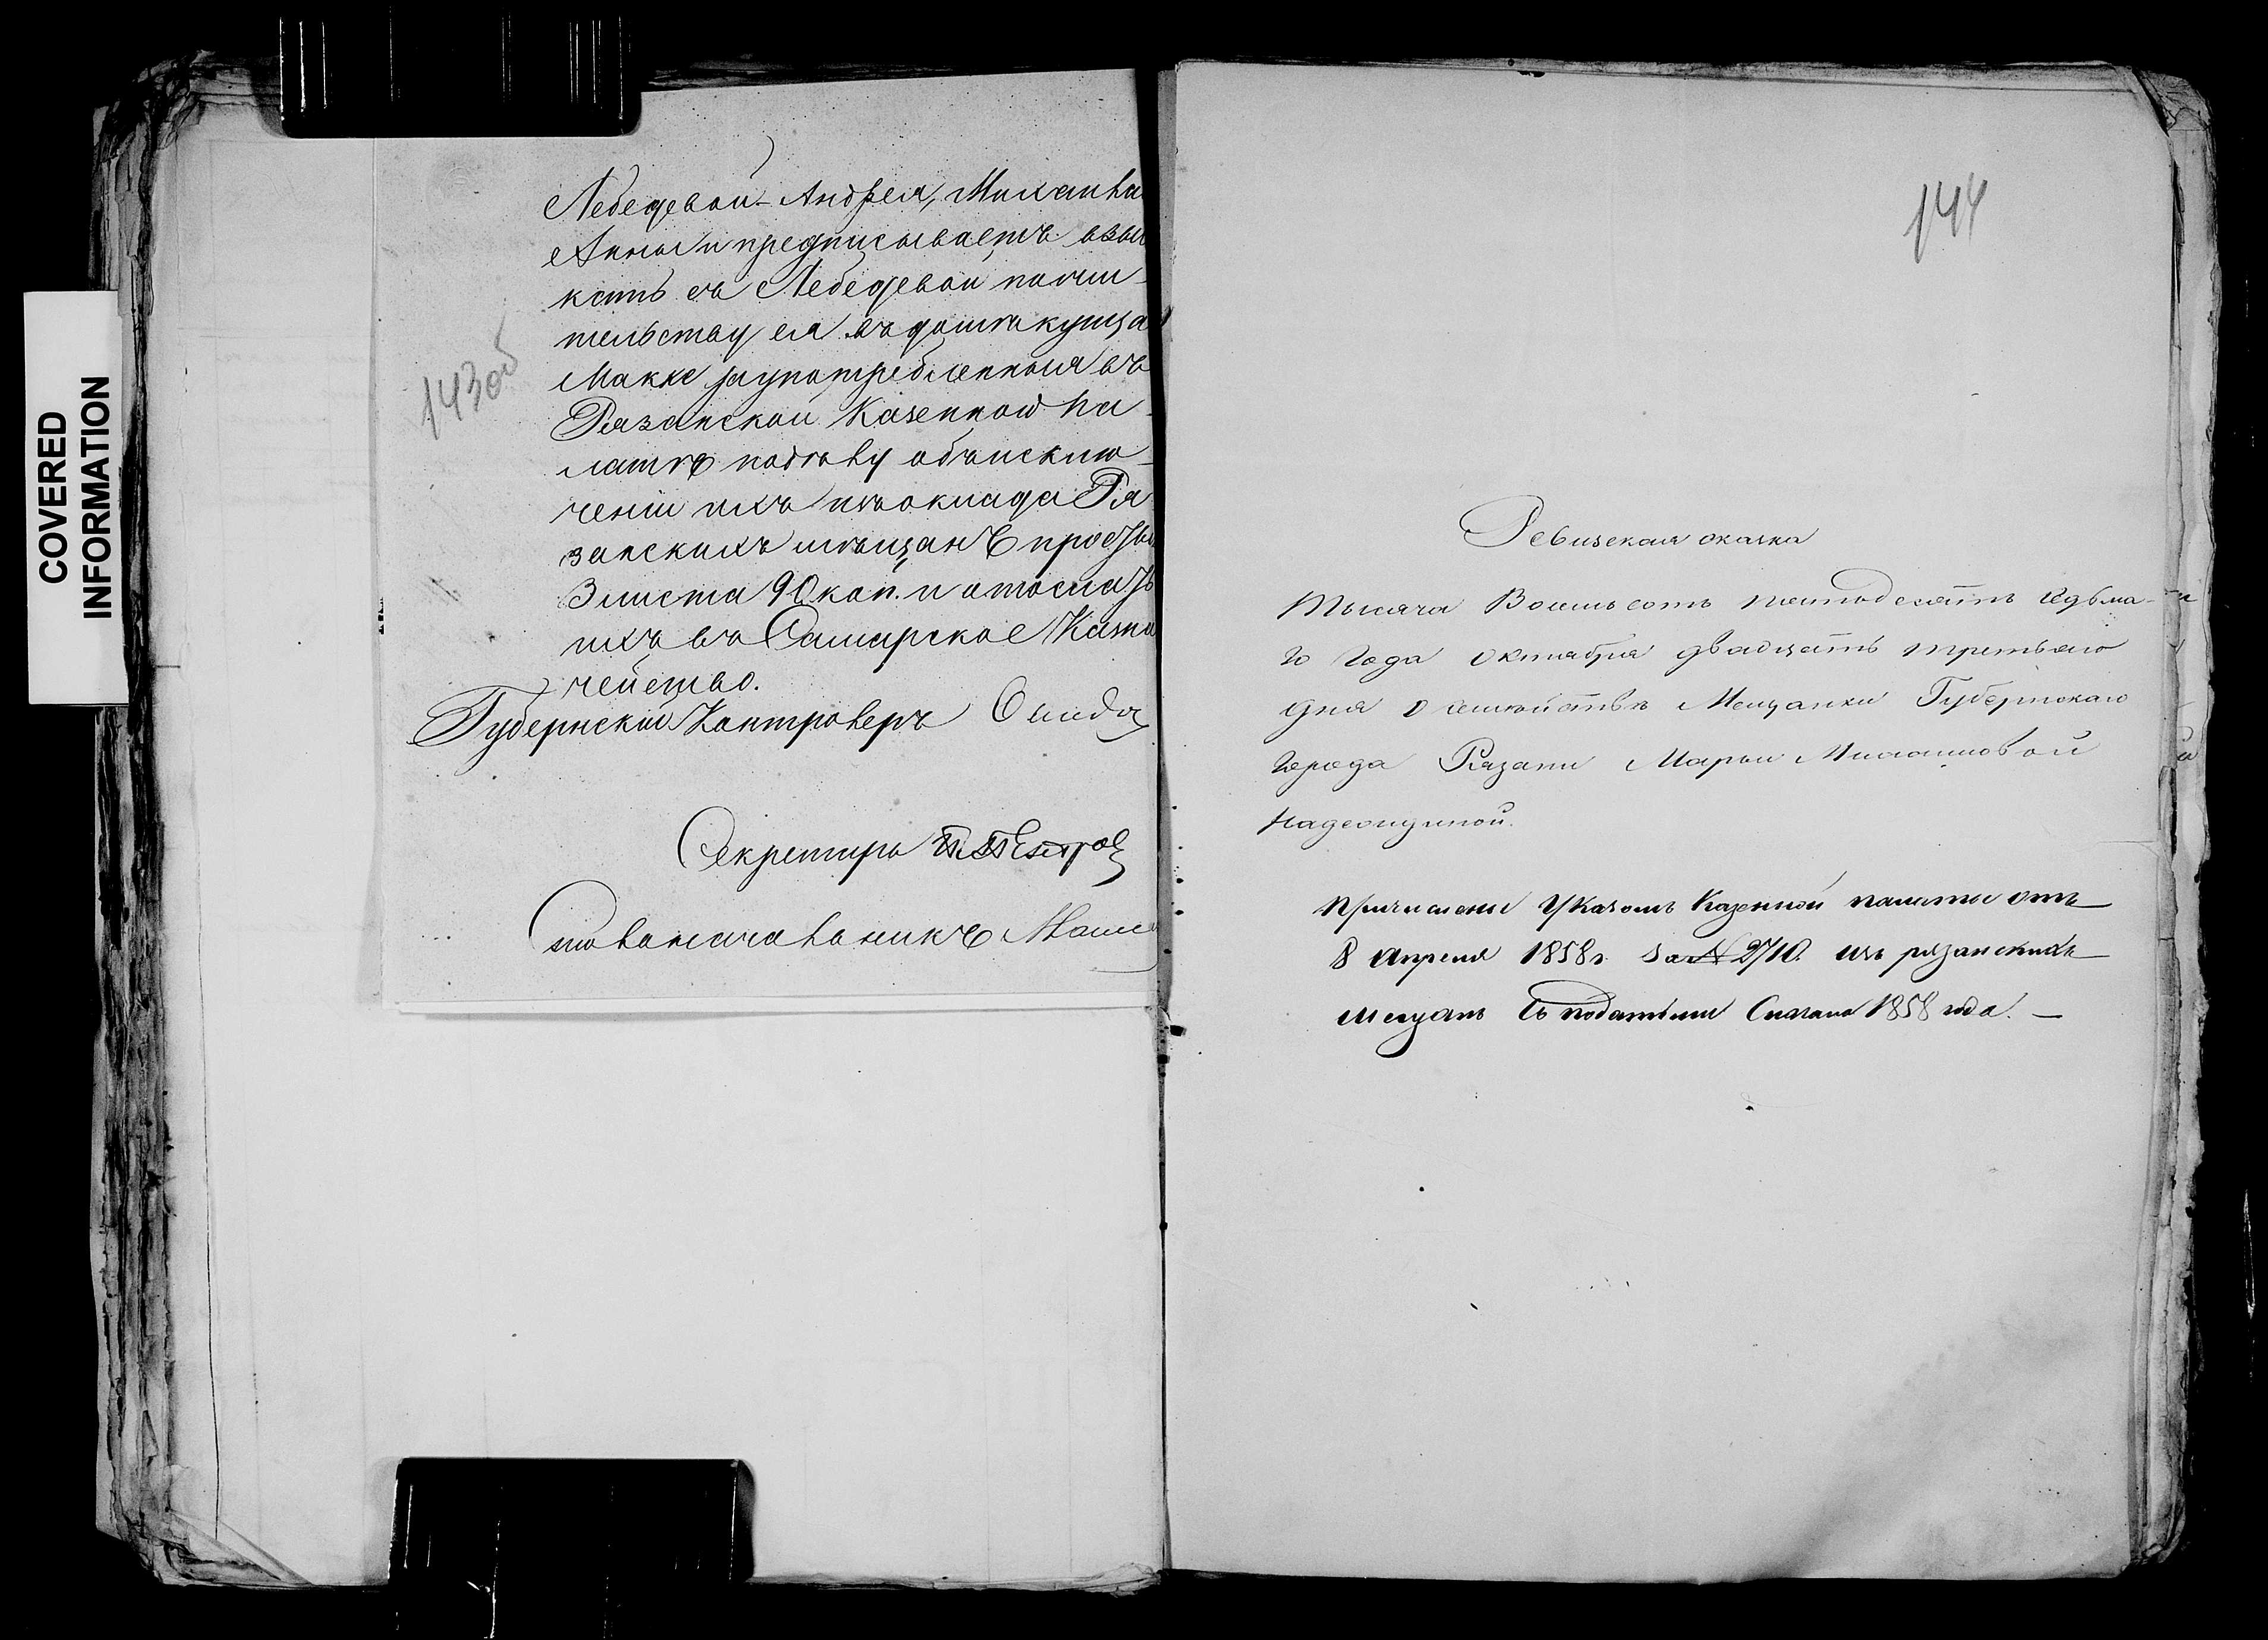 COVERED
INFORMATION
143об
Лебедевой - Андрея, Михаила
Анны и предписываетъ взыс
кать съ Лебедевой по жи-
тельству ея въ домѣ купца
Макке за употребленныя въ
Рязанской Казенной Па-
латѣ по дѣлу объ исклю-
ченіи ихъ изъ оклада Ря
занскихъ мѣщанъ простые
3 листа 90 коп. и отослать
ихъ въ Самарское Казна
чейство.
Губернскій Контролеръ
Секретарь Петров
Столоначальникъ
144
Ревизская сказка
Тысяча Восемьсотъ пятьдесятъ седьма-
го Года Октября двадцать третьяго
дня о семѣйствѣ Мещанки Губернскаго
Города Рязани Марьи
Причислены Указомъ Казенной палаты отъ
8 Апреля 1858 г. за № 2710. изъ рязанскихъ
мещанъ Съ податьми Сначала 1858 года. —